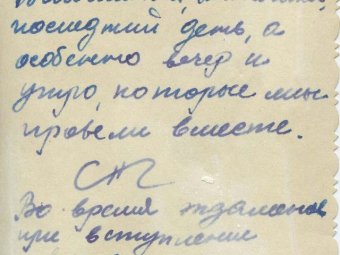 последний день, а
особенно вечер и
утро, которые мы
провели вместе.
Во время экзаменов
при вступлении